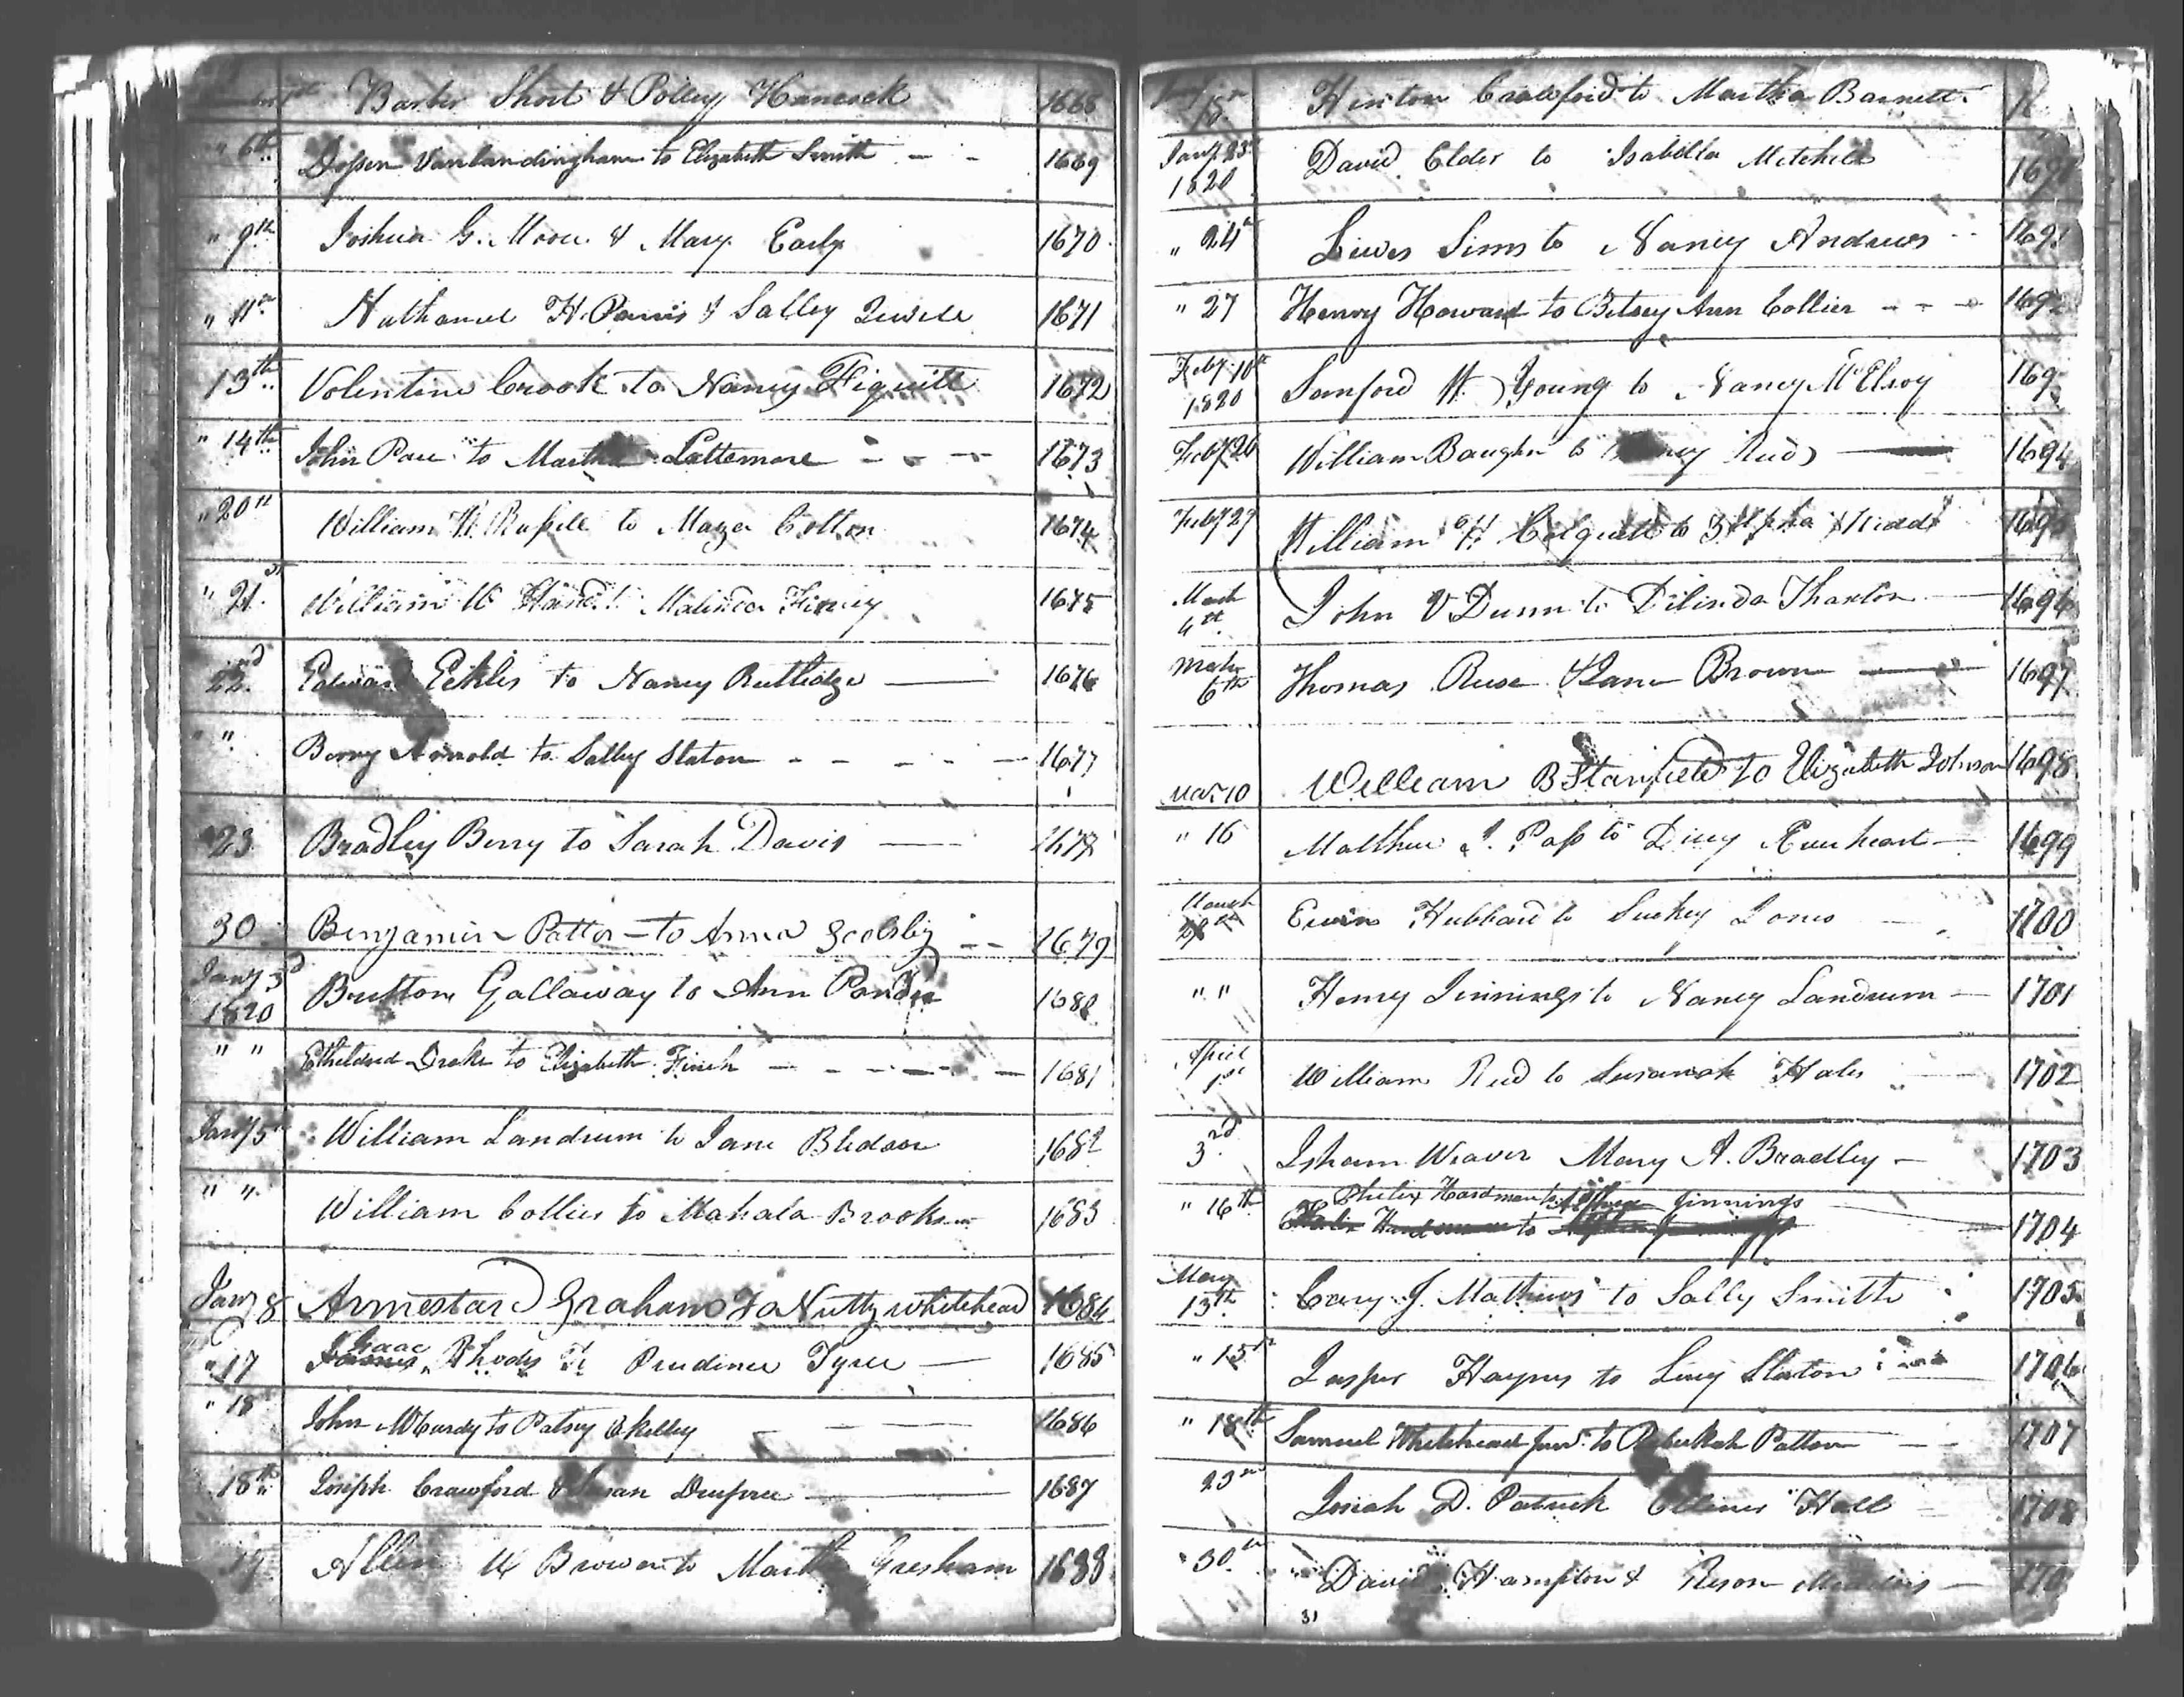 Baxter Short & Polley Hancock 1668
" 6th Vanlandingham to Elizabeth Smith - - 1669
" 9th Joshua G. Moore & Mary Early 1670
" 11th Nathaniel H. & Salley 1671
13th Volentine Crook to Nancy 1672
" 14th John Pace to Martha Lattemore - - - 1673
" 20th William to Colton 1674
" 21st William W Malinda 1675
22nd Edward Echles to Nancy Rutledge 1676
" " Berry Arnold to Salley Slaton - - - - - 1677
23 Bradley Berry to Sarah Davis 1678
30 Benjamin Patton to Anna - - 1679
Jany 3d 1820 Britton Gallaway to Ann 1680
" " Etheldred Drake to Elizabeth Finch - - - - - - 1681
Jany 5th William Landrum to Jane Bledsoe 1682
" " William Collier to Mahala Brooks 1683
Jany 8 Armestard Graham To Nutty whitehead 1684
" 17 Isaac Rhodes To Prudence Tyree 1685
" 18 John McCurdy to Patsey Okelley 1686
18th Joseph Crawford & Susan Dupree 1687
Allen W Brown to Martha Gresham 1688
18th Hinton Crawford to Martha Barnett
Jany 23d 1820 David Elder to Isabella Mitchell
" 24th Lewes Sims to Nancy Andrews - -
" 27 Henry Howard to Betsey Ann Collier - - -
Feby 10th 1820 Sanford W. Young to Nancy McElroy
Feby 26 William Baughn to 1694
Feby 27 William H. Colquitt to Kidd 1695
March 4th John V Dunn to Dilinda Thaxton 1696
March 6th Thomas Ruse & Jane Brown 1697
Mar 10 William B Stanfield to Elizabeth Johnson 1698
" 16 Matthew J. Pass to 1699
March Ewin Hubbard to Suckey Jones 1700
" " Henry Jinnings to Nancy Landrum 1701
April 1st William Reed to Susanah Hales 1702
3rd Isham Weaver Mary A. Bradley 1703
" 16th Phelix Hardman to Jinnings
to 1704
May 13th Cary J. Mathews to Sally Smith 1705
" 15th Jasper Haynes to Lucy Slaton 1706
" 18th Samuel Whitehead Junr. to Rebekah Patton - - 1707
23rd Josiah D. Patrick Hall 1708
" 30th David Hampton &
31